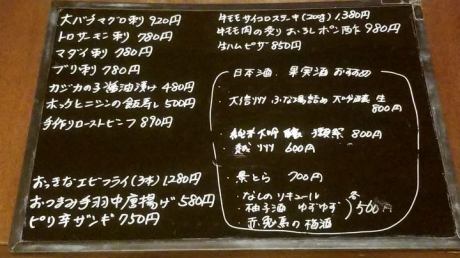 大バチマグロ刺 920円
トロサーモン刺 780円
マダイ刺 780円
ブリ刺 780円
カジカの子醤油漬け 480円
ホッケとニシンの飯寿し 500円
手作りローストビーフ 890円
おっきなエビフライ(3本) 1280円
おつまみ手羽中唐揚げ 580円
ピリ辛ザンギ 750円
牛モモサイコロステーキ(120g) 1,380円
牛モモ肉の炙り おろしポン酢 980円
生ハムピザ 850円
日本酒 果実酒 おすすめ
・大信州 大吟醸 生
800円
・純米大吟醸 獺祭 800円
・ 600円
・景とら 700円
・なしのリキュール
・柚子酒 ゆずゆず
・赤兎馬の梅酒
各500円